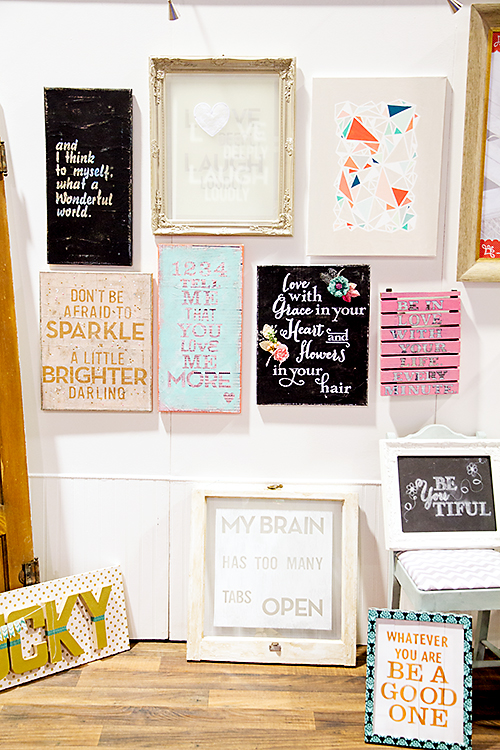 and
I think
to myself,
what a
Wonderful
world.
LAUGH
LOUDLY
DON'T BE
AFRAID TO
SPARKLE
A LITTLE
BRIGHTER
DARLING
1234
TELL
ME
THAT
YOU
LOVE
ME
MORE
Love
with
Grace in your
Heart and
flowers
in your
hair
BE IN
LOVE
WITH
YOUR
LIFE
EVERY
MINUTE
BE
You
TIFUL
MY BRAIN
HAS TOO MANY
TABS OPEN
CKY
WHATEVER
YOU ARE
BE A
GOOD
ONE